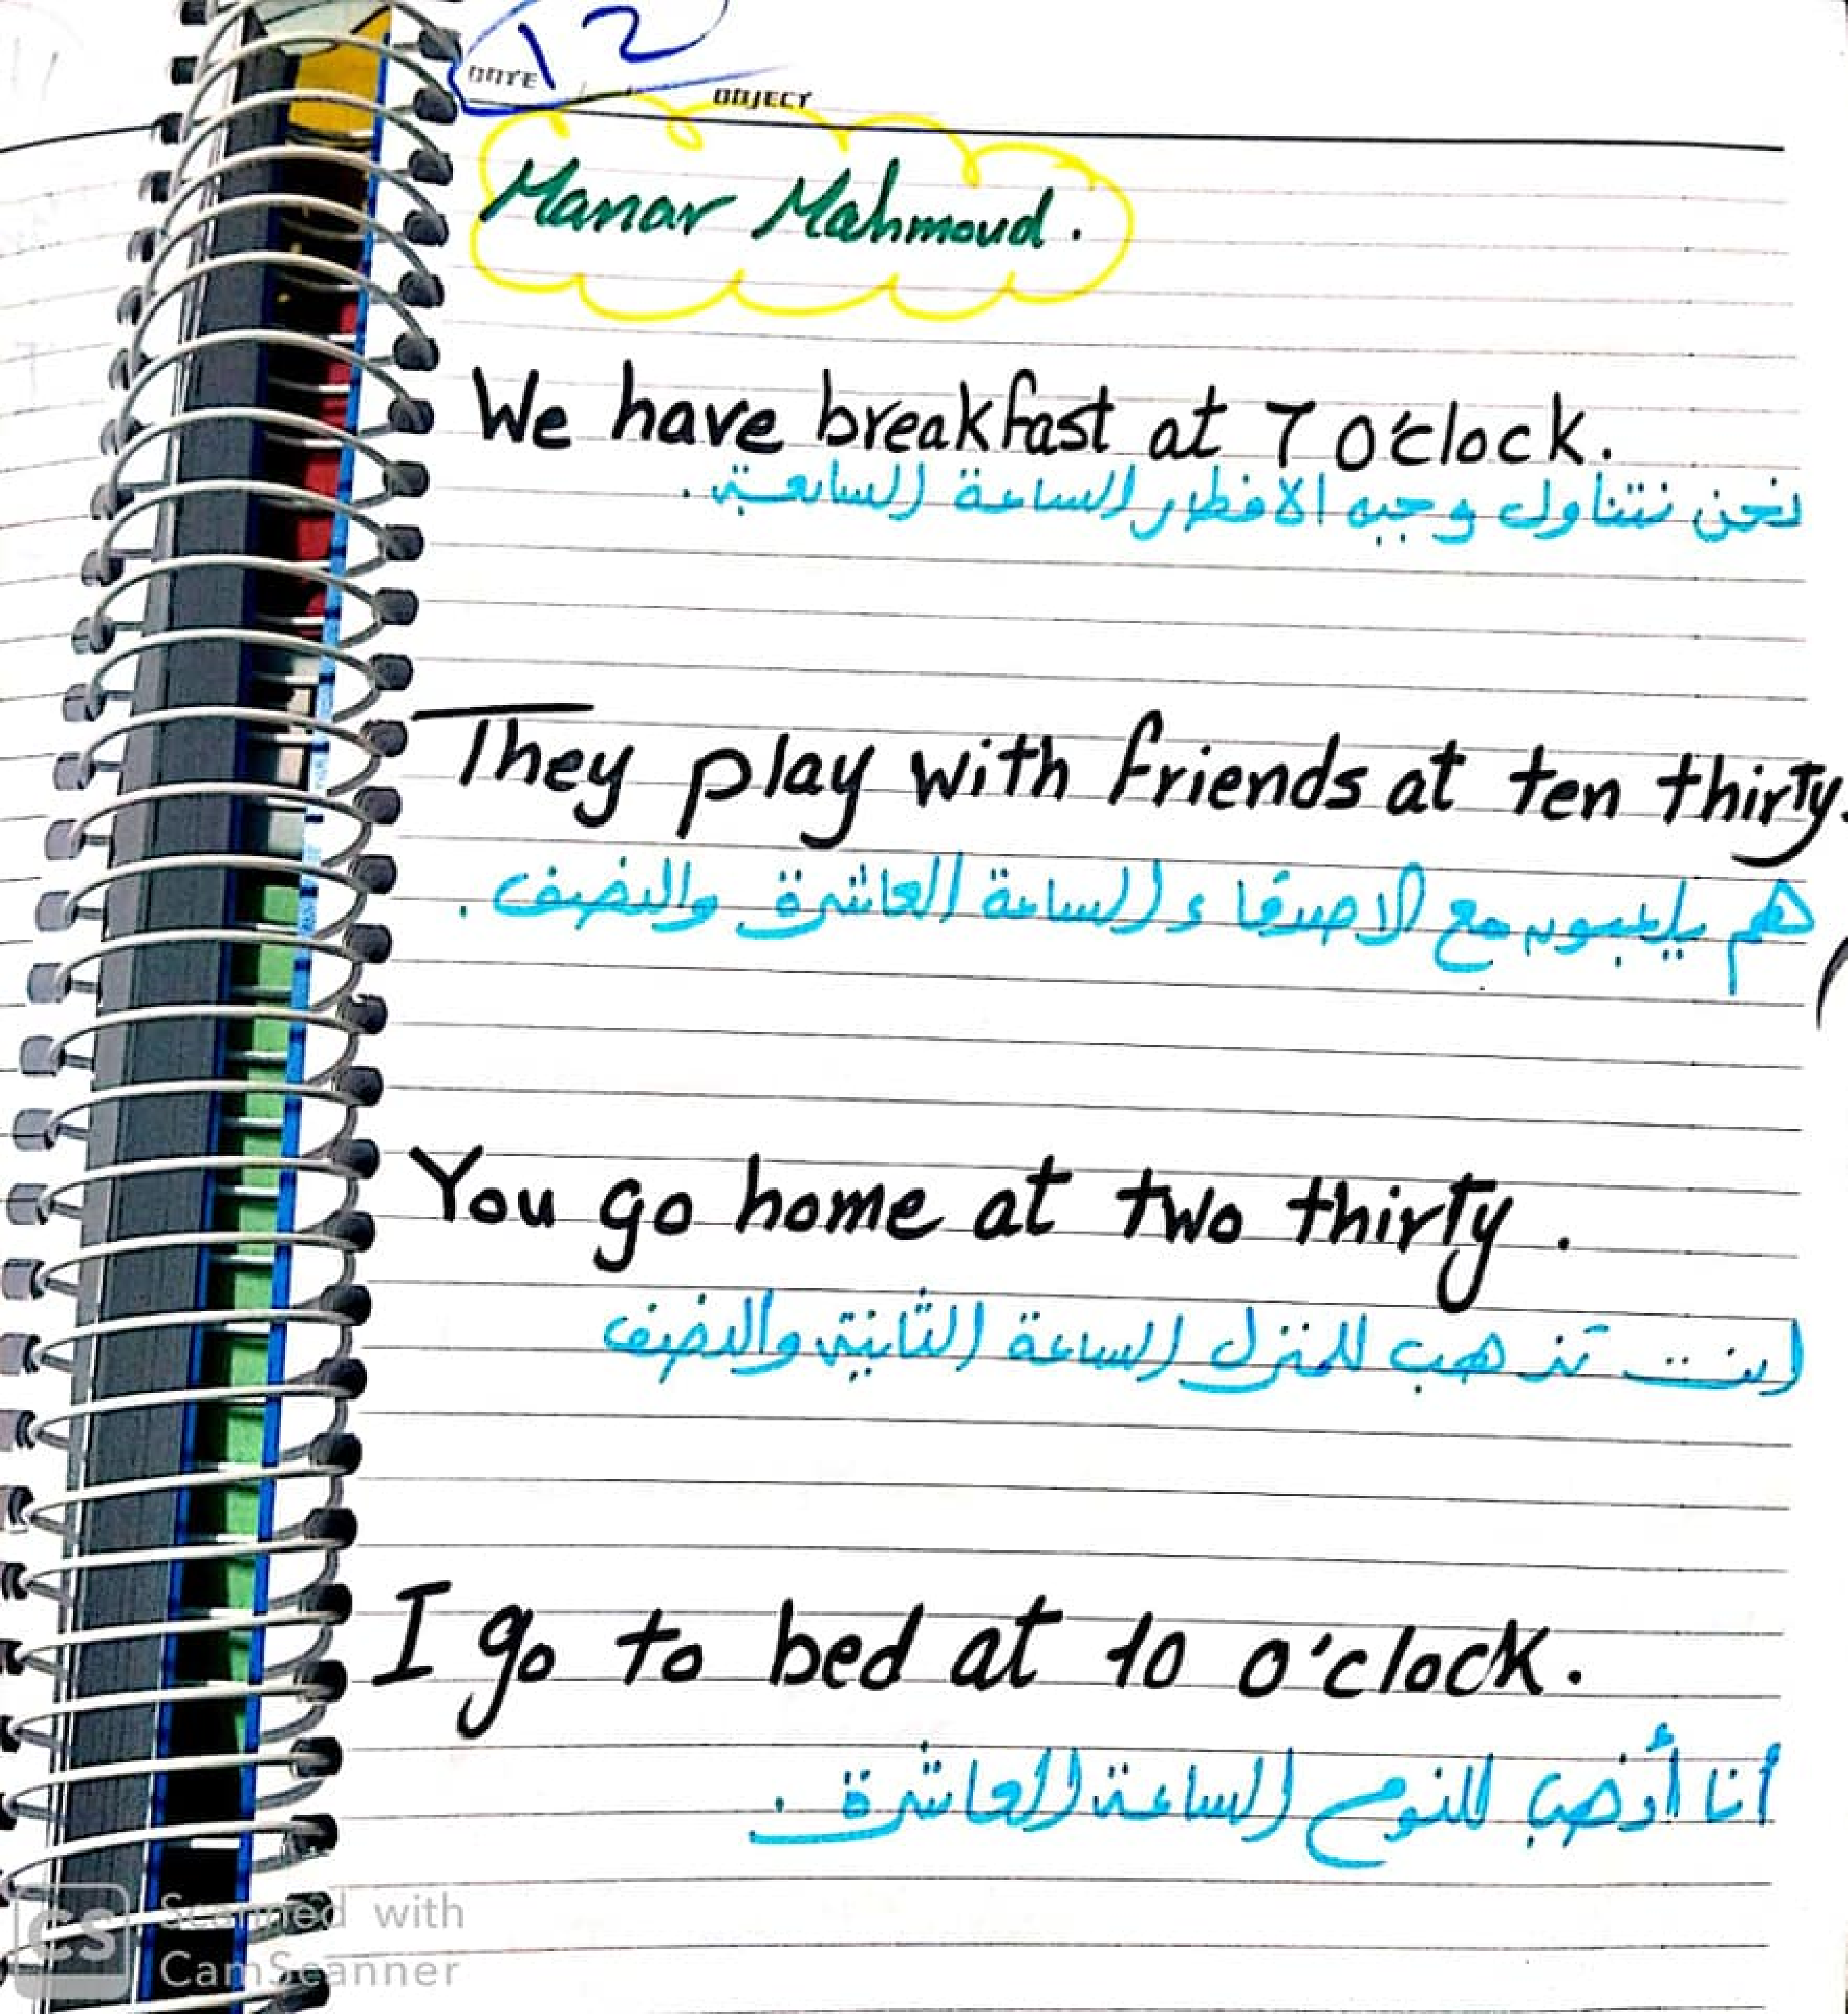 12
DATE
OBJECT
Manar Mahmoud.
We have breakfast at 7 O'clock.
نحن نتناول وجبه الافطار الساعة السابعة.
They play with friends at ten thirty.
هم يلعبون مع الاصدقاء الساعة العاشرة والنصف.
You go home at two thirty.
انت تذهب للمنزل الساعة الثانية والنصف
I go to bed at 10 o'clock.
أنا أذهب للنوم الساعة العاشرة.
CS Scanned with
CamScanner